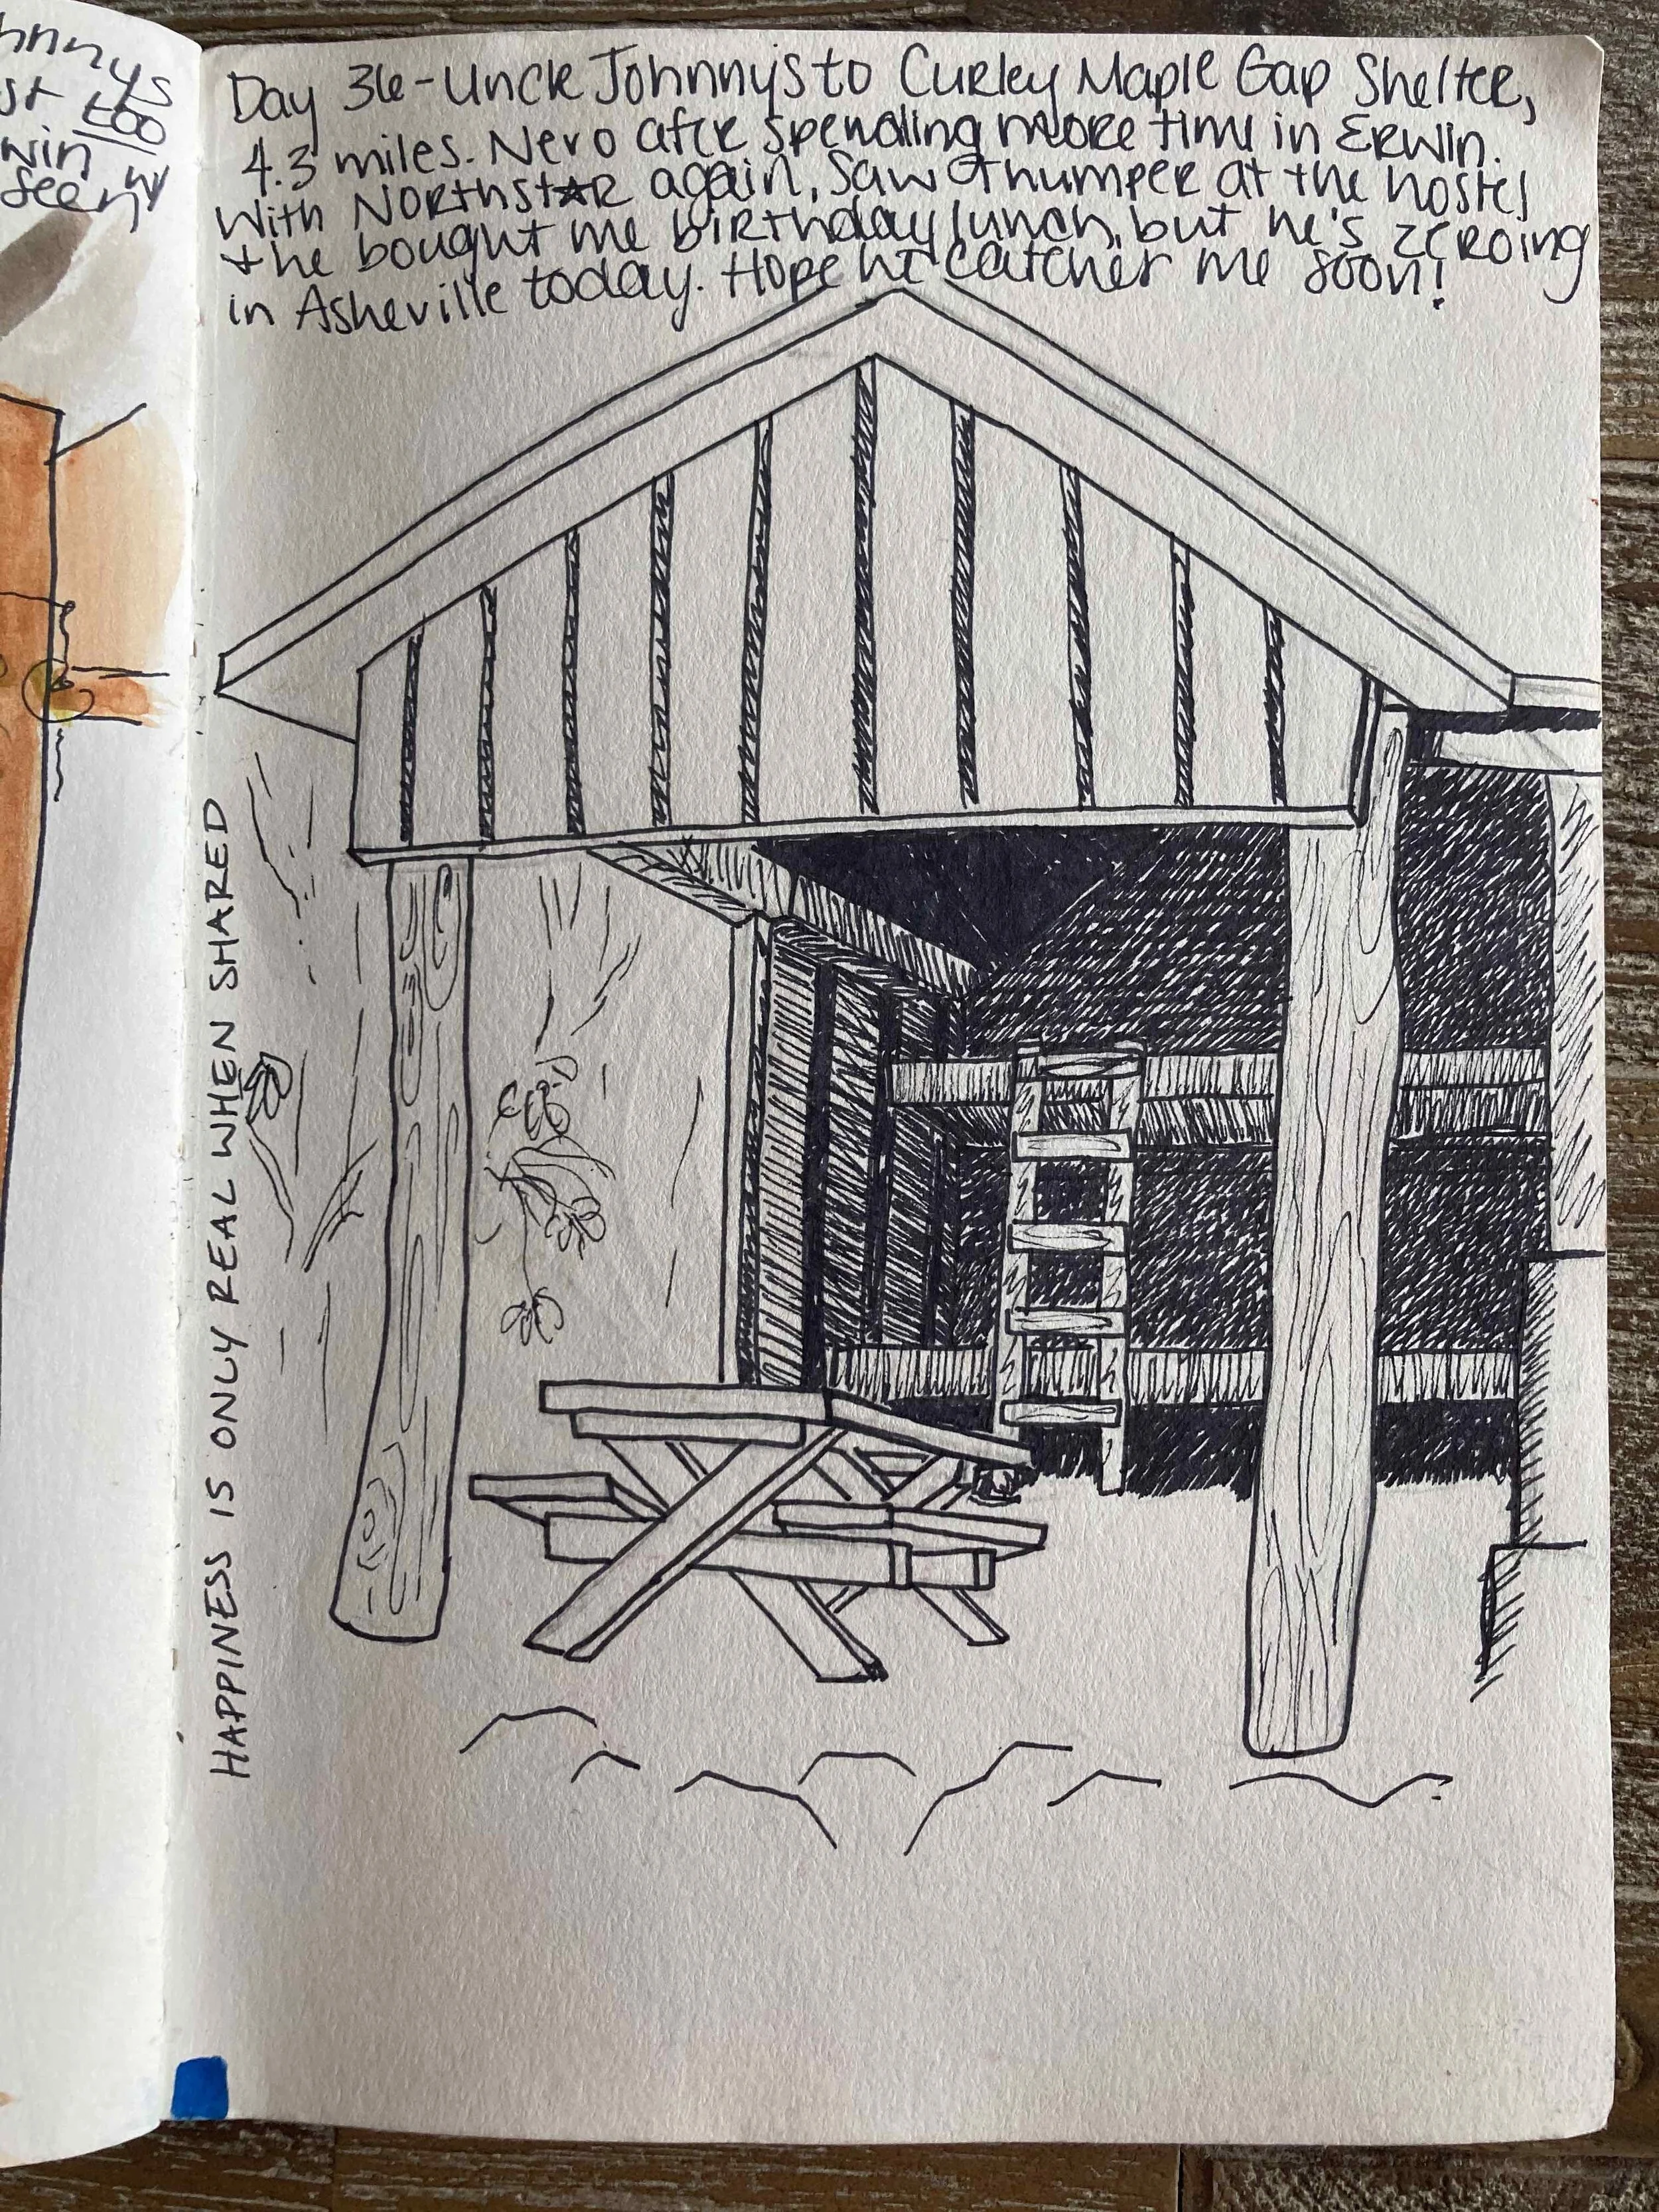 hnnys
st too
win w/
seen
Day 36-Uncle Johnny's to Curley Maple Gap Shelter,
4.3 miles. Nero after spending more time in Erwin.
With Northst★r again, saw Thumper at the hostel
+ he bought me birthday lunch, but he's zeroing
in Asheville today. Hope he catches me soon!
HAPPINESS IS ONLY REAL WHEN SHARED